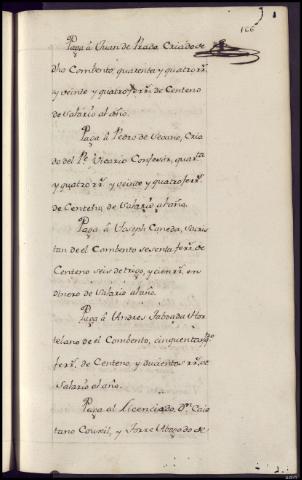 166
Paga â Juan de Prado, Criado de
dho Combento, quarenta y quatro rr.
y veinte y quatro ferr.s de Centeno
de Salario al año.
Paga â Pedro de Verano, Cria
do del Pe. Vicario Confesor, quarta
y quatro rr. y veinte y quatro ferr.s
de Centeno, de Salario al año.
Paga â Joseph Caneda, Sacris
tan de el Combento sesenta ferr.s de
Centeno seis de trigo, y cien rr. en
dinero de Salario al año.
Paga â Andres Taboada Hor
telano de el Combento, cinquenta
ferr.s de Centeno, y ducientos rr. de
Salario al año.
Paga al Licenciado Dn. Caie
tano y Torre Abogado de